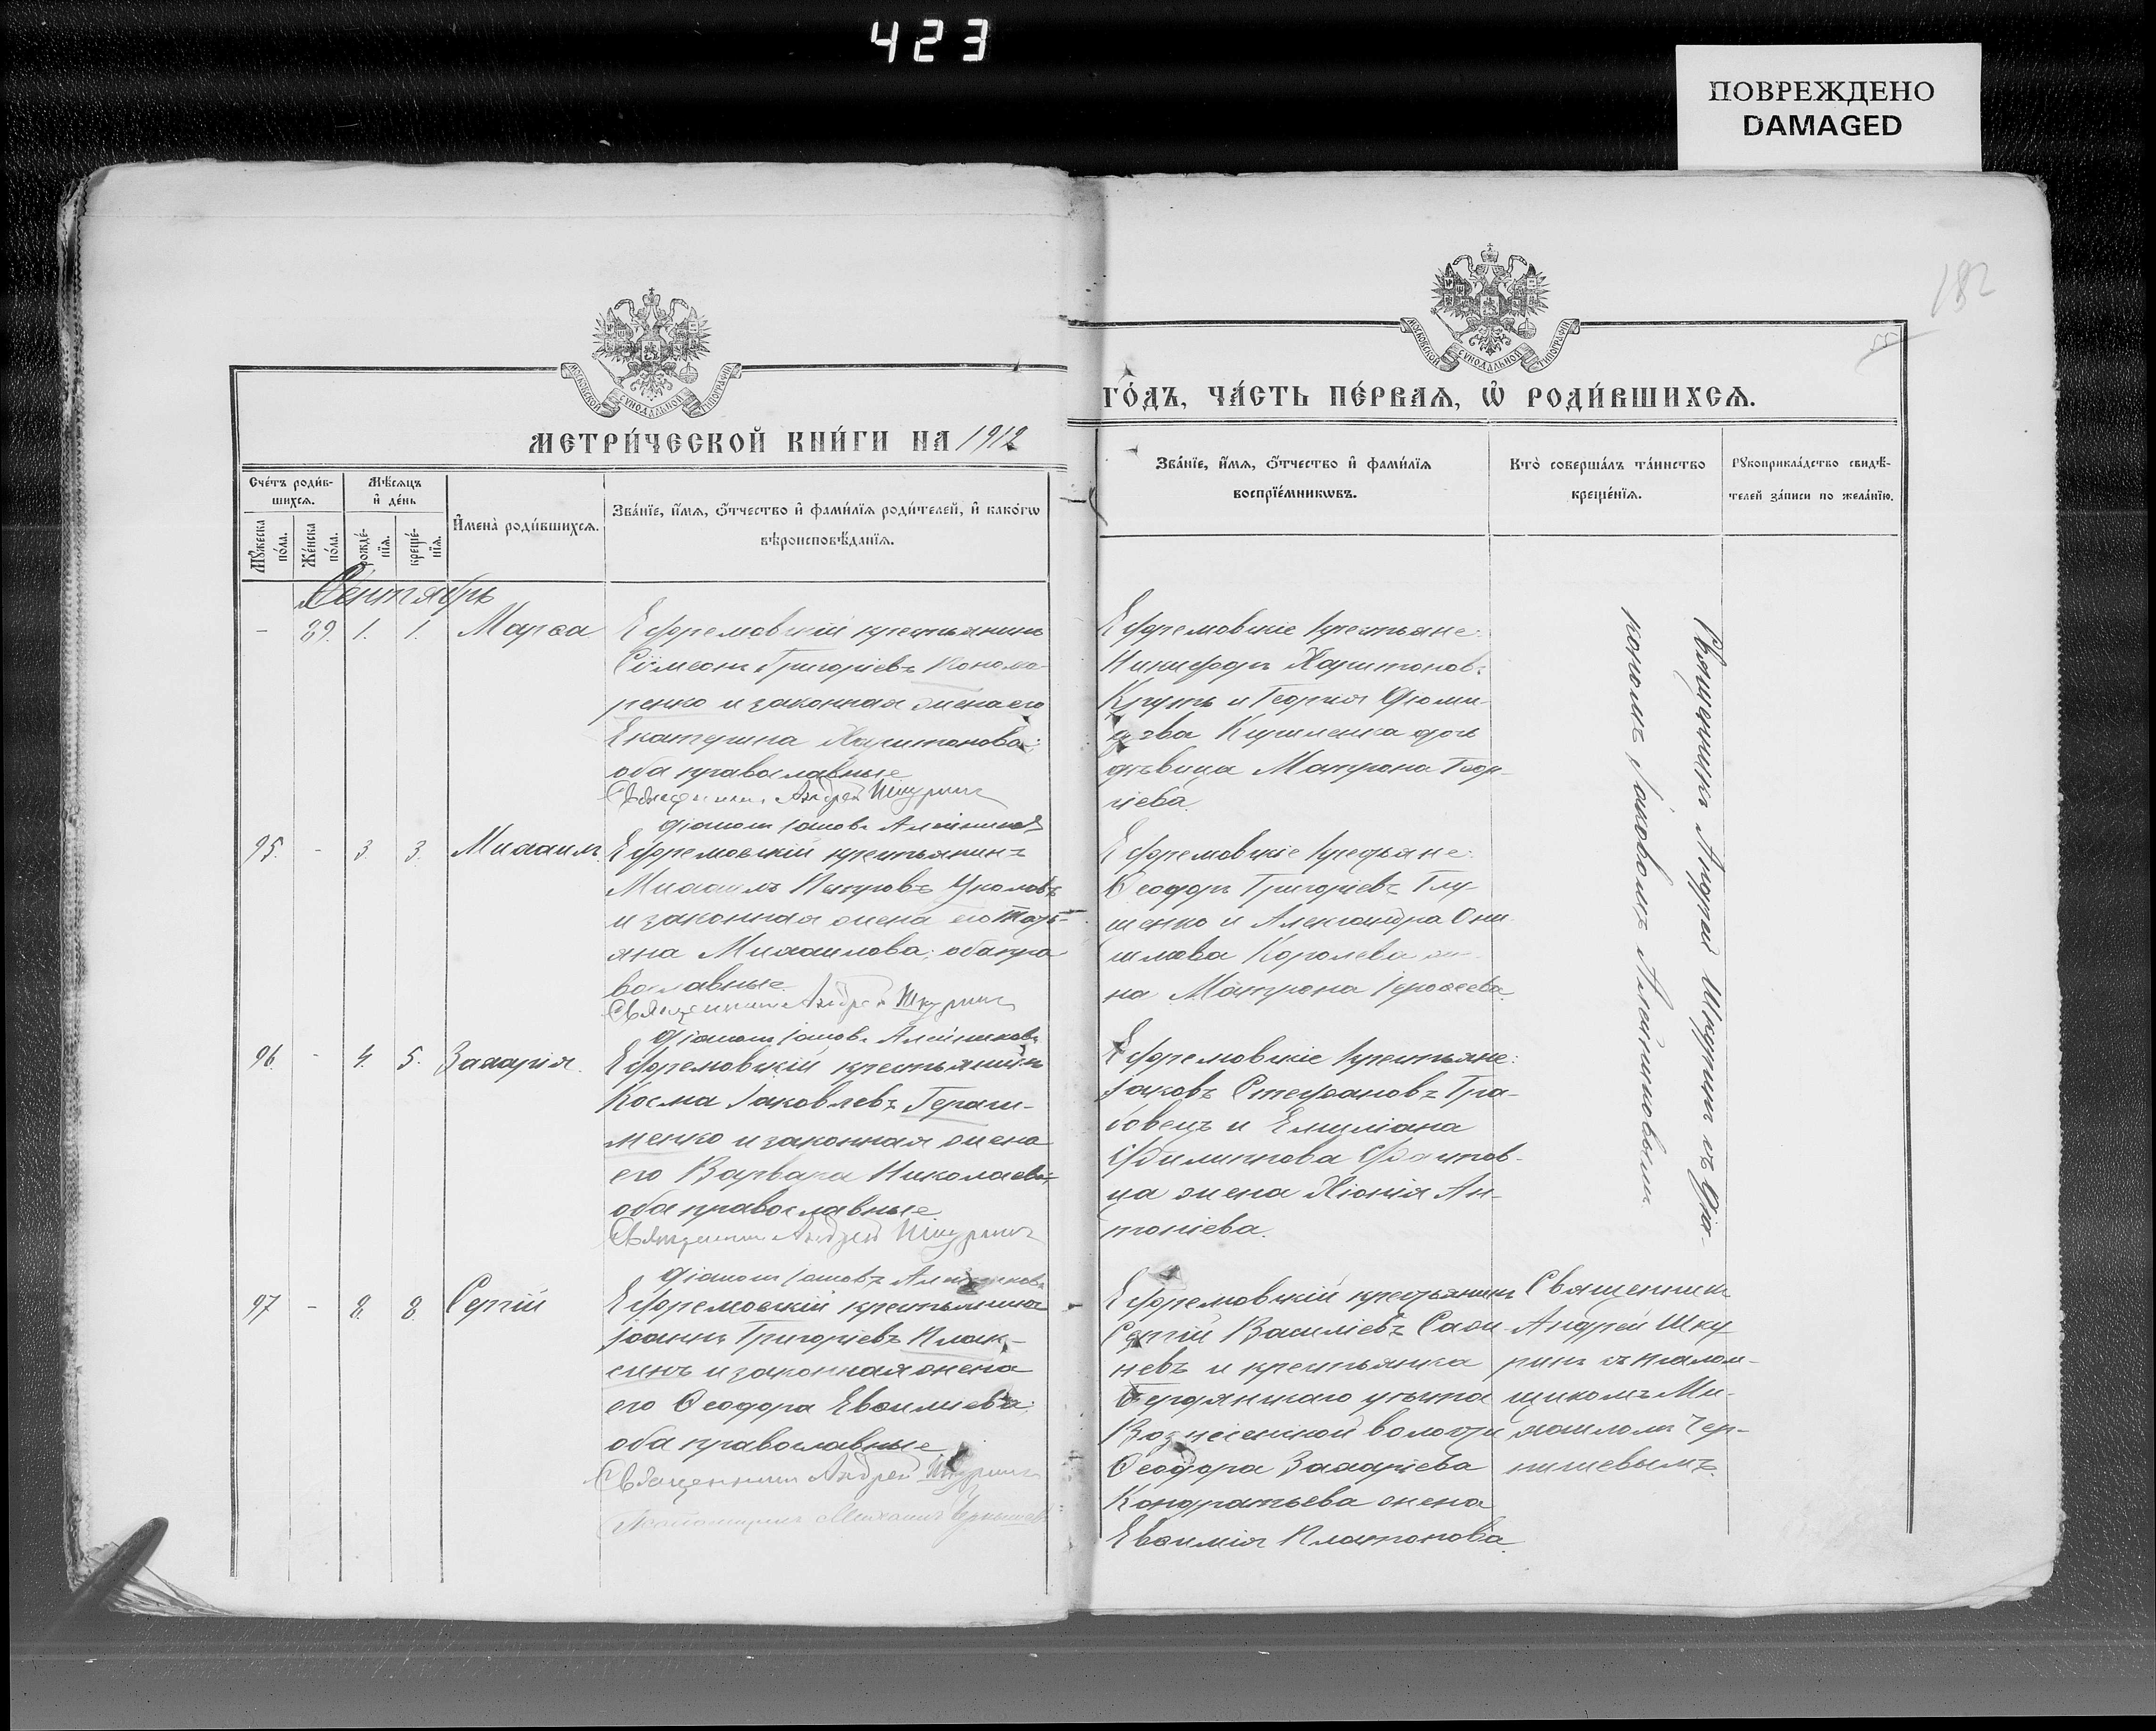 423
ПОВРЕЖДЕНО
DAMAGED
182
МОСКОВСКОЙ СѴНОДАЛЬНОЙ ТИПОГРАФІИ
МОСКОВСКОЙ СѴНОДАЛЬНОЙ ТИПОГРАФІИ
МЕТРИ́ЧЕСКОЙ КНИ́ГИ НА 1912
ГО́ДЪ, ЧА́СТЬ ПЕ́РВАѦ, Ѽ РОДИ́ВШИХСѦ.
Сче́тъ роди́в-
шихсѧ.
Мꙋ́жеска
по́ла.
Же́нска
по́ла.
Мѣ́сѧцъ
и҆ де́нь
рожде́-
нїѧ.
креще́-
нїѧ.
И҆мена̀ роди́вшихсѧ.
Зва́нїе, и҆́мѧ, ѻ҆́тчество и҆ фами́лїѧ роди́телей, и҆ како́гѡ
вѣроисповѣ́данїѧ.
Зва́нїе, и҆́мѧ, ѻ҆́тчество и҆ фами́лїѧ
воспрїе́мникѡвъ.
Кто̀ соверша́лъ та́инство
креще́нїѧ.
Рꙋкоприкла́дство свидѣ́-
телей за́писи по жела́нїю.
Сентябрь
- 89. 1. 1. Марѳа
Ефремовскій крестьянинъ
Сѵмеонъ Григоріевъ Коноло-
ренко и законная жена его
Екатерина Харитонова;
оба православные
Священникъ Андрей Шкуринъ
Діаконъ Іаковъ Алейниковъ
Ефремовскіе крестьяне:
Никифоръ Харитоновъ
Круть и Георгія
дочь
дѣвица Матрона Геор-
гіева.
95. - 3. 3. Михаилъ
Ефремовскій крестьянинъ
Михаилъ Петровъ Уколовъ
и законная жена его Тать-
яна Михаилова; оба пра-
вославные
Священникъ Андрей Шкуринъ
Діаконъ Іаковъ Алейниковъ
Ефремовскіе крестьяне:
Ѳеодоръ Григоріевъ Глу-
шенко и Александра Они-
Королева же-
на Матрона Іероѳеева.
96. - 4. 5. Захарія.
Ефремовскій крестьянинъ
Косма Іаковлевъ Гераси-
менко и законная жена
его Варвара Николаева;
оба православные
Священникъ Андрей Шкуринъ
Діаконъ Іаковъ Алейниковъ
Ефремовскіе крестьяне:
Іаковъ Стефановъ Гра-
бовецъ и Емиліана
Филиппова
жена Хіонія Ан-
тоніева.
Священникъ Андрей Шкуринъ съ Діа-
кономъ Іаковомъ Алейниковымъ
97 - 8. 8. Сергій
Ефремовскій крестьянинъ
Іоаннъ Григоріевъ Плак-
синъ и законная жена
его Ѳеодора Евѳиміева:
оба православные
Священникъ Андрей Шкуринъ
Псаломщикъ Михаилъ Чернышевъ
Ефремовскій крестьянинъ
Сергій Василіевъ Сажи-
невъ и крестьянка
Бердянскаго уѣзда
Вознесенской волости
Ѳеодора Захаріева
Кондратьева жена
Евѳимія Платонова.
Священникъ
Андрей Шку-
ринъ съ псалом-
щикомъ Ми-
хаиломъ Чер-
нышевымъ.